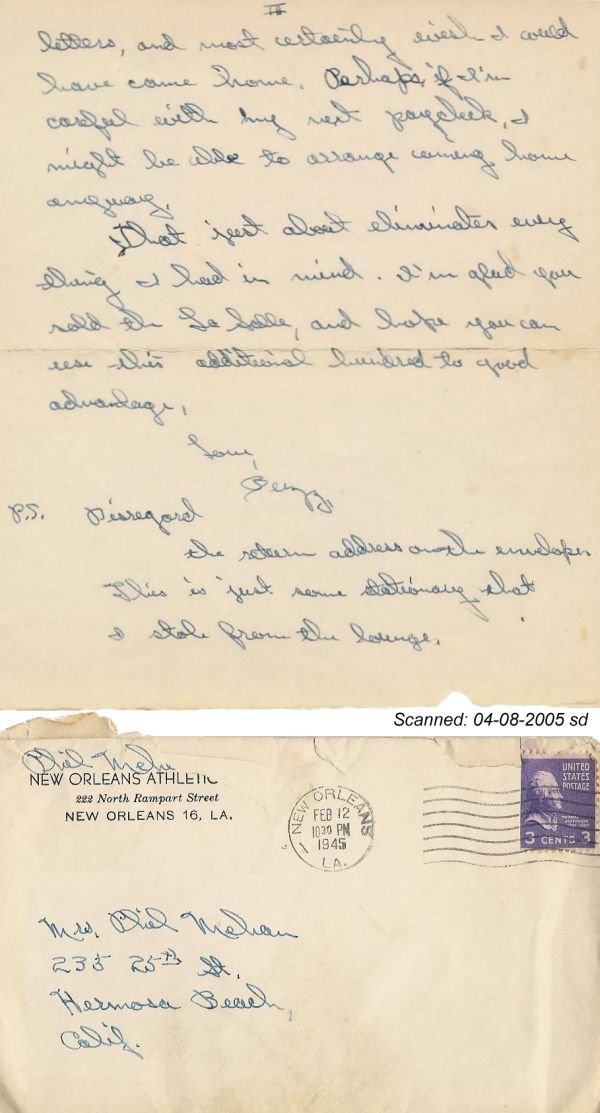 III
letters, and most certainly wish I could
have come home. Perhaps, if I'm
careful with my next paycheck, I
might be able to arrange coming home
anyway.
That just about eliminates every
thing I had in mind. I'm glad you
sold the La Salle, and hope you can
use this additional hundred to good
advantage.
Love,
P.S. Disregard
the return address on the envelope.
This is just some stationary that
I stole from the lounge.
Scanned: 04-08-2005 sd
Phil
NEW ORLEANS ATHLETIC
222 North Rampart Street
NEW ORLEANS 16, LA.
NEW ORLEANS
FEB 12
10 30 PM
1945
LA.
UNITED
STATES
POSTAGE
THOMAS
JEFFERSON
3 CENTS 3
Mrs. Phil Mehan
235 25th St.
Hermosa Beach,
Calif.